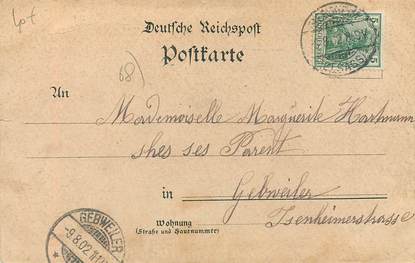 Deutsche Reichspost
Postkarte
68)
An
Mademoiselle Marguerite Hartmann
shes ses Parent
in Gebweiler
Wohnung
(Straße und Hausnummer)
Isenheimerstrasse
GEBWEILER
-9.8.02